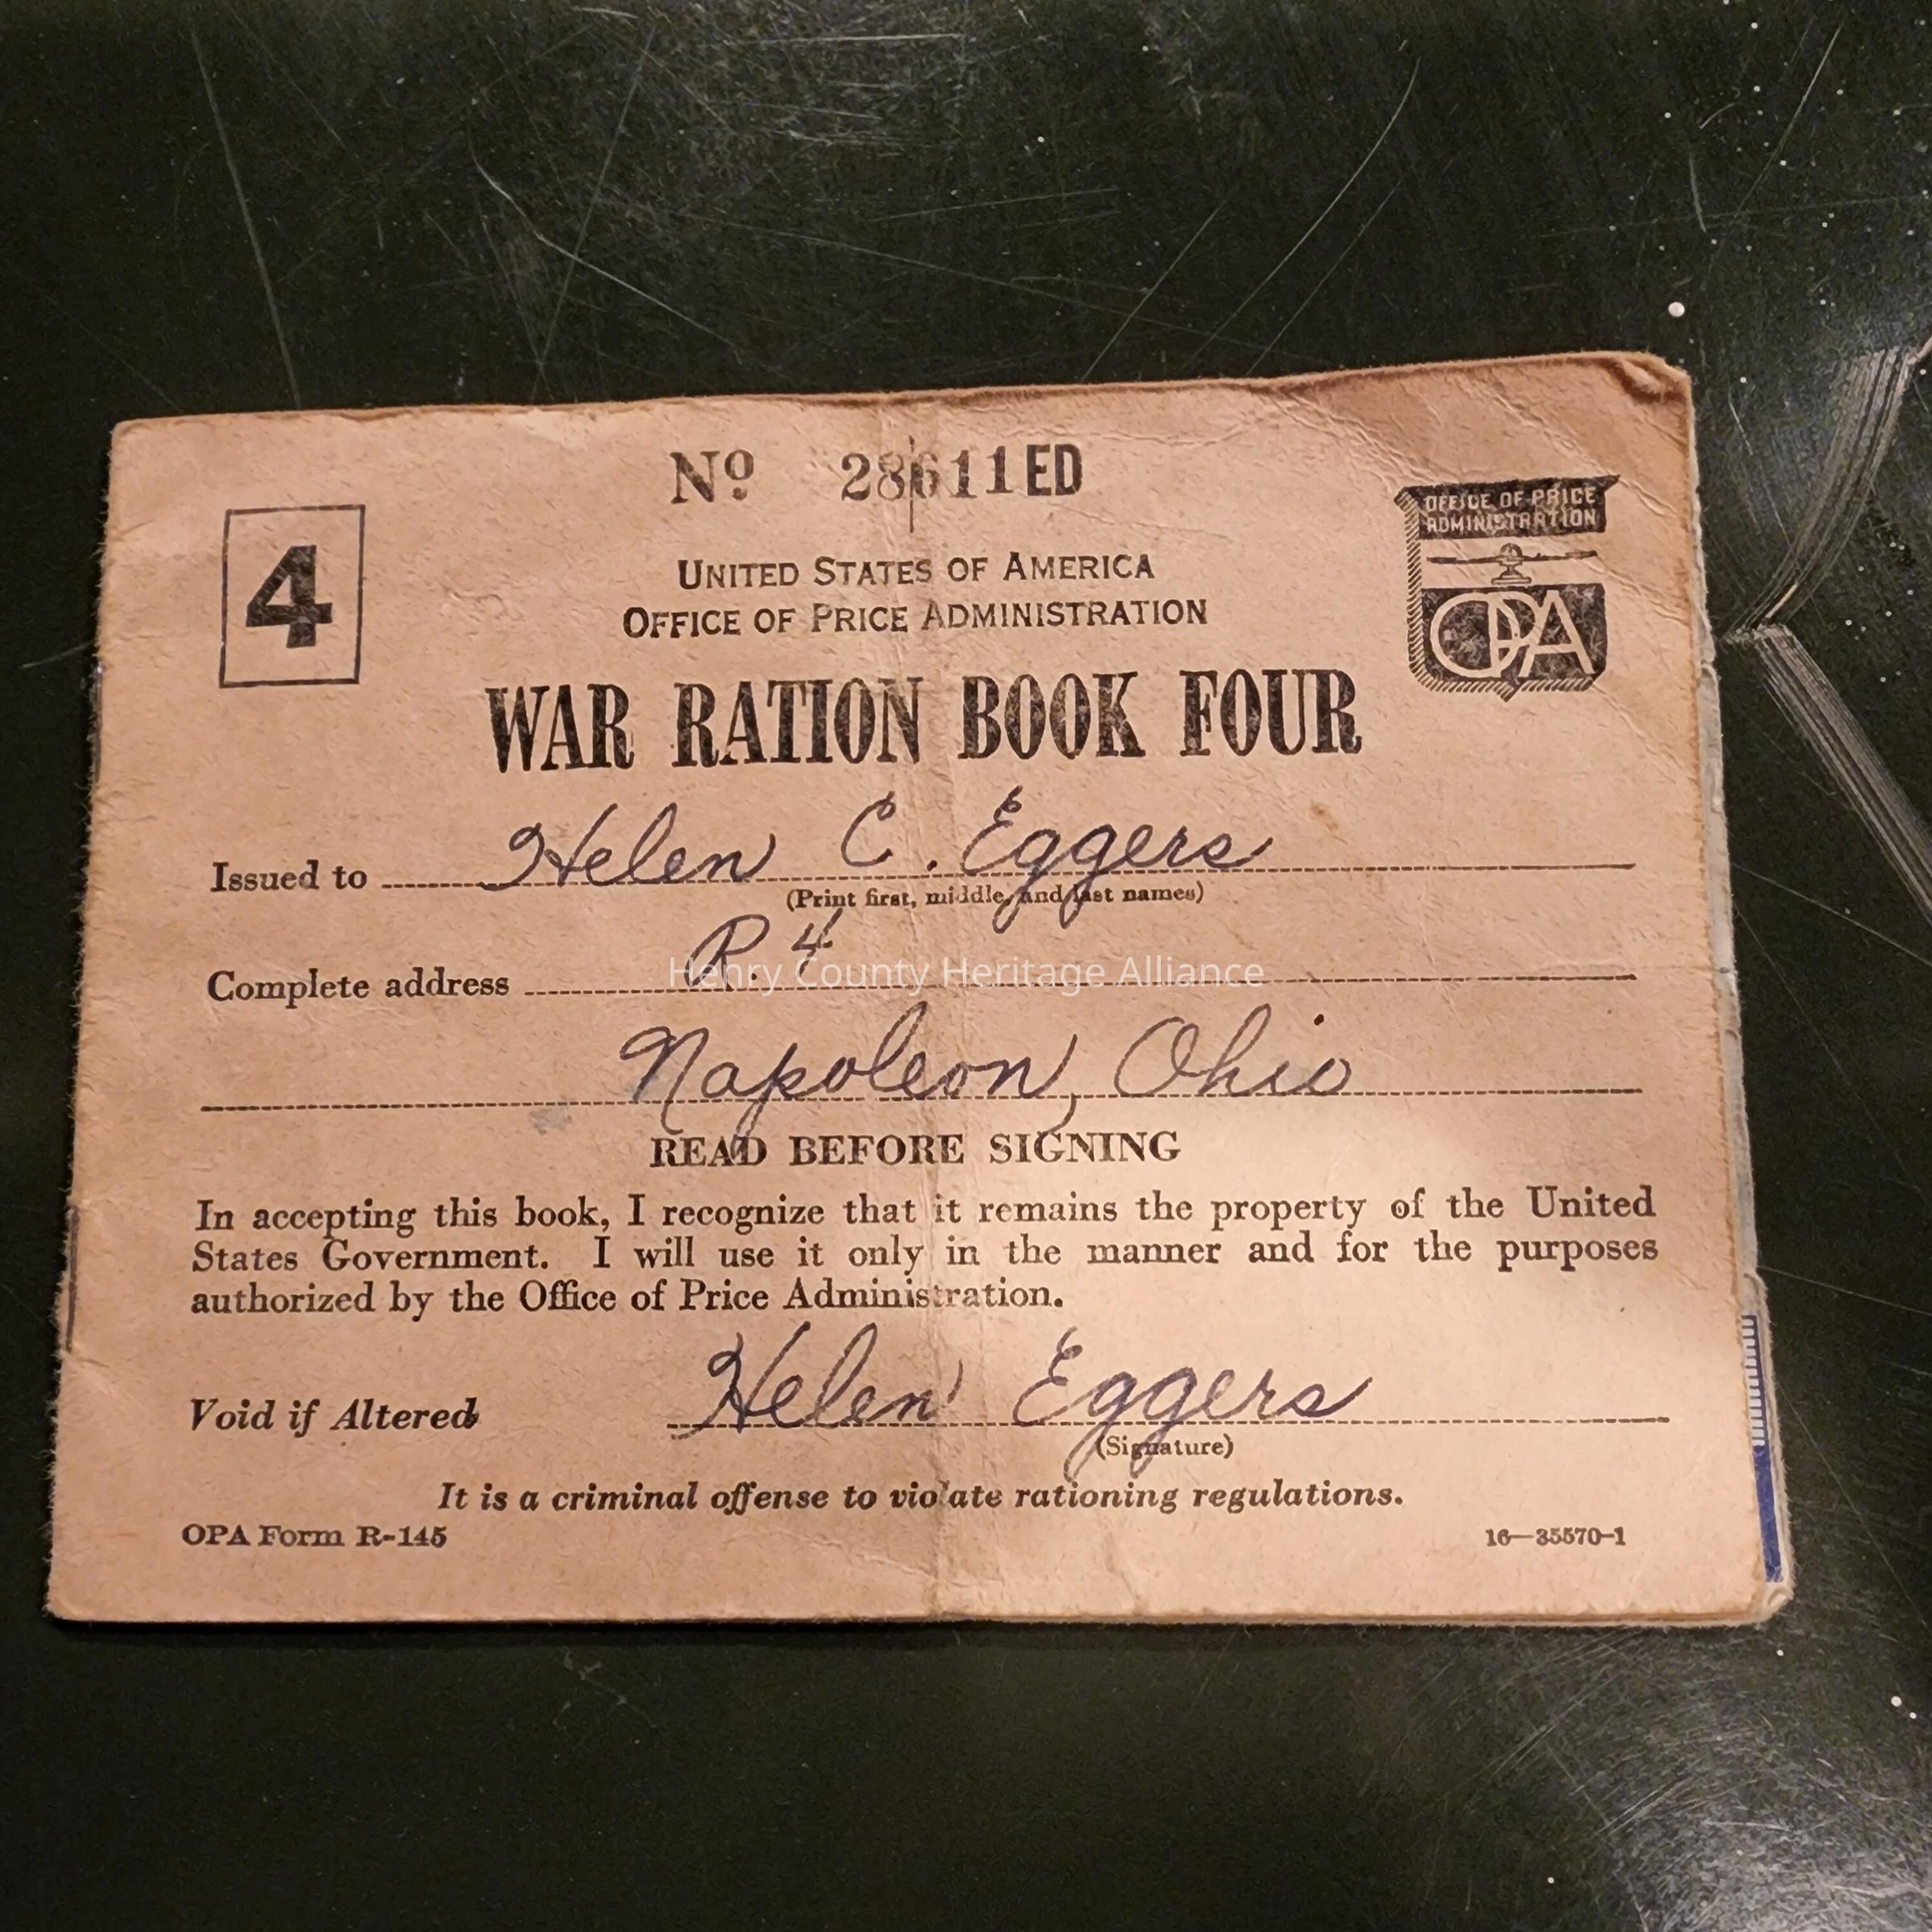 Nº 28611ED
4
OFFICE OF PRICE
ADMINISTRATION
OPA
UNITED STATES OF AMERICA
OFFICE OF PRICE ADMINISTRATION
WAR RATION BOOK FOUR
Issued to Helen C. Eggers
(Print first, middle, and last names)
Complete address R. 4
Henry County Heritage Alliance
Napoleon, Ohio
READ BEFORE SIGNING
In accepting this book, I recognize that it remains the property of the United
States Government. I will use it only in the manner and for the purposes
authorized by the Office of Price Administration.
Void if Altered Helen Eggers
(Signature)
It is a criminal offense to violate rationing regulations.
OPA Form R-145 16—35570-1